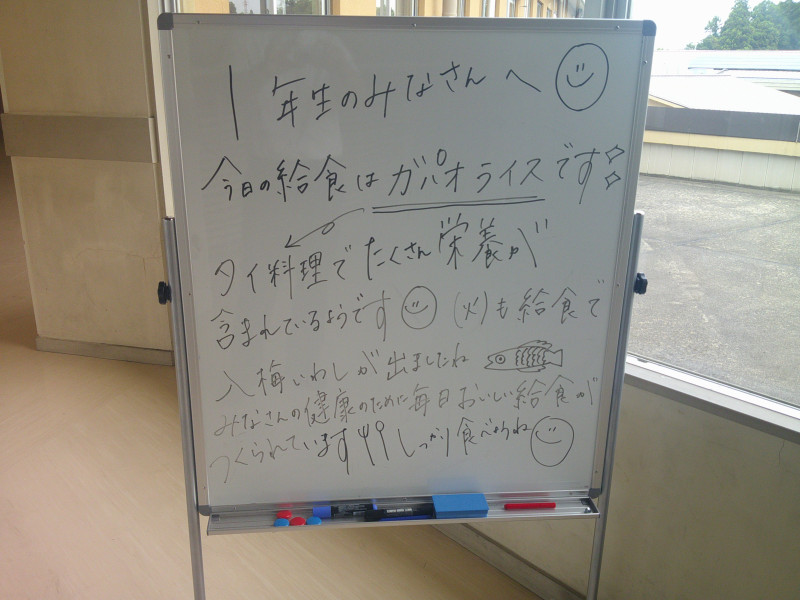 1年生のみなさんへ
今日の給食はガパオライスです
タイ料理でたくさん栄養が
含まれているようです (火)も給食で
入梅いわしが出ましたね
みなさんの健康のために毎日おいしい給食が
つくられています しっかり食べようね